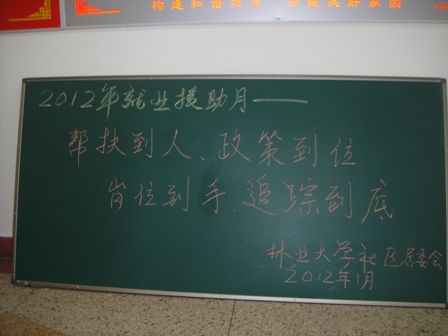 构建和谐社区 共建美好家园
2012年就业援助月——
帮扶到人、政策到位
岗位到手、追踪到底
林业大学社区居委会
2012年1月